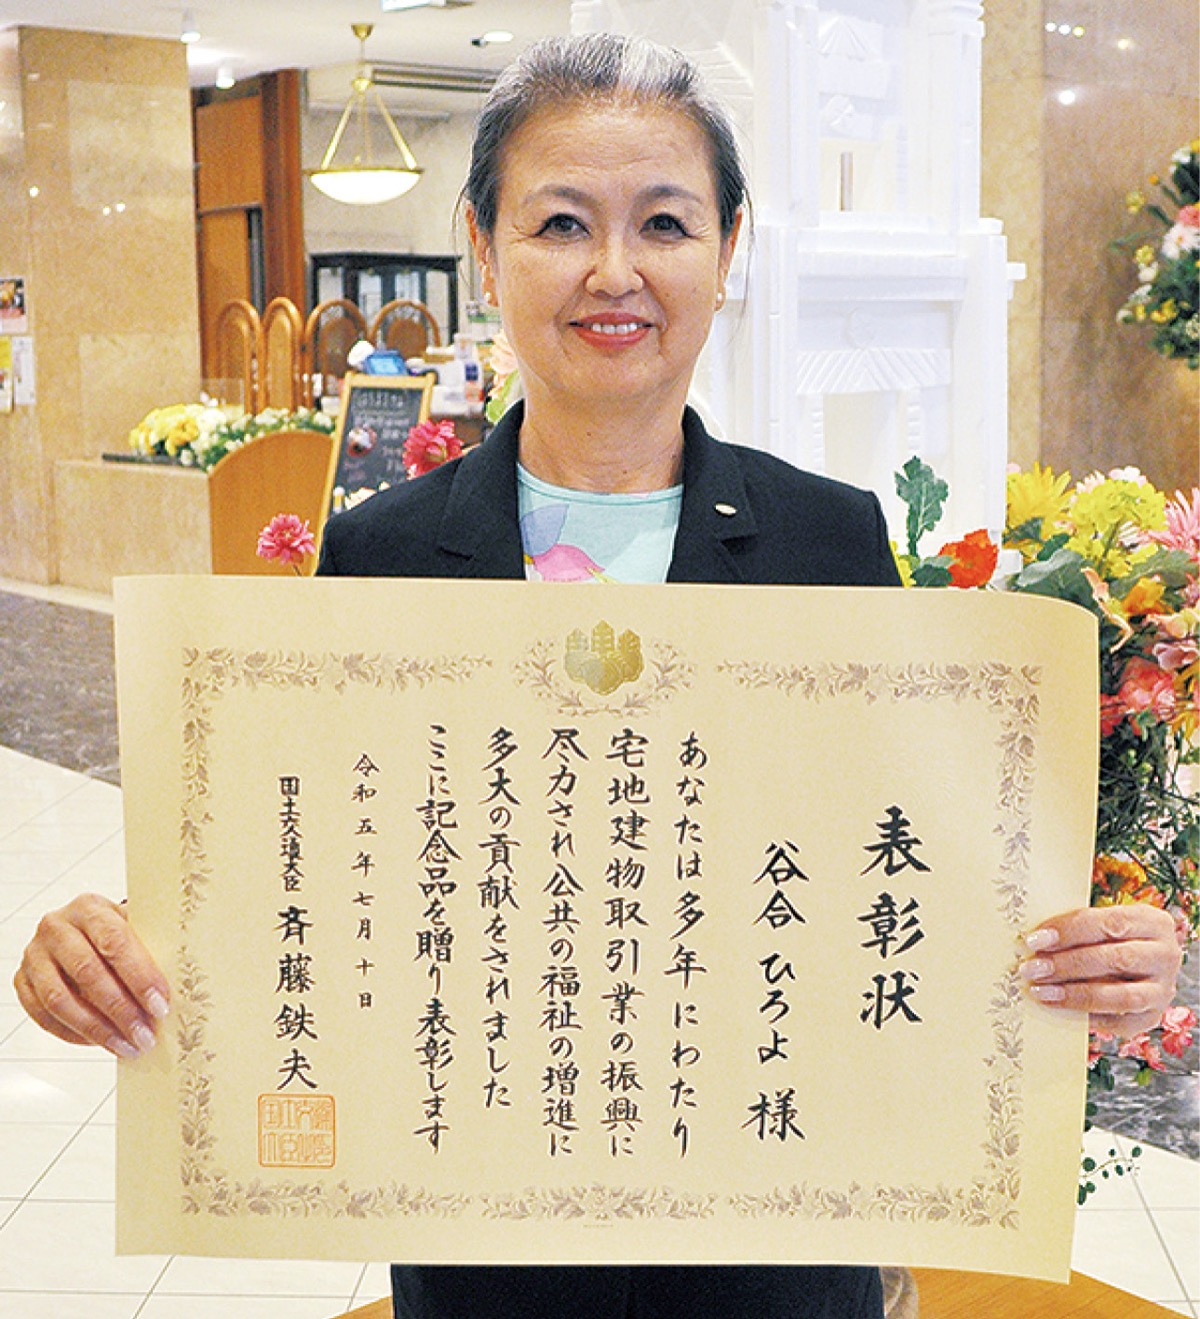 表彰状
谷合 ひろよ 様
あなたは多年にわたり
宅地建物取引業の振興に
尽力され公共の福祉の増進に
多大の貢献をされました
ここに記念品を贈り表彰します
令和五年七月十日
国土交通大臣 斉藤鉄夫